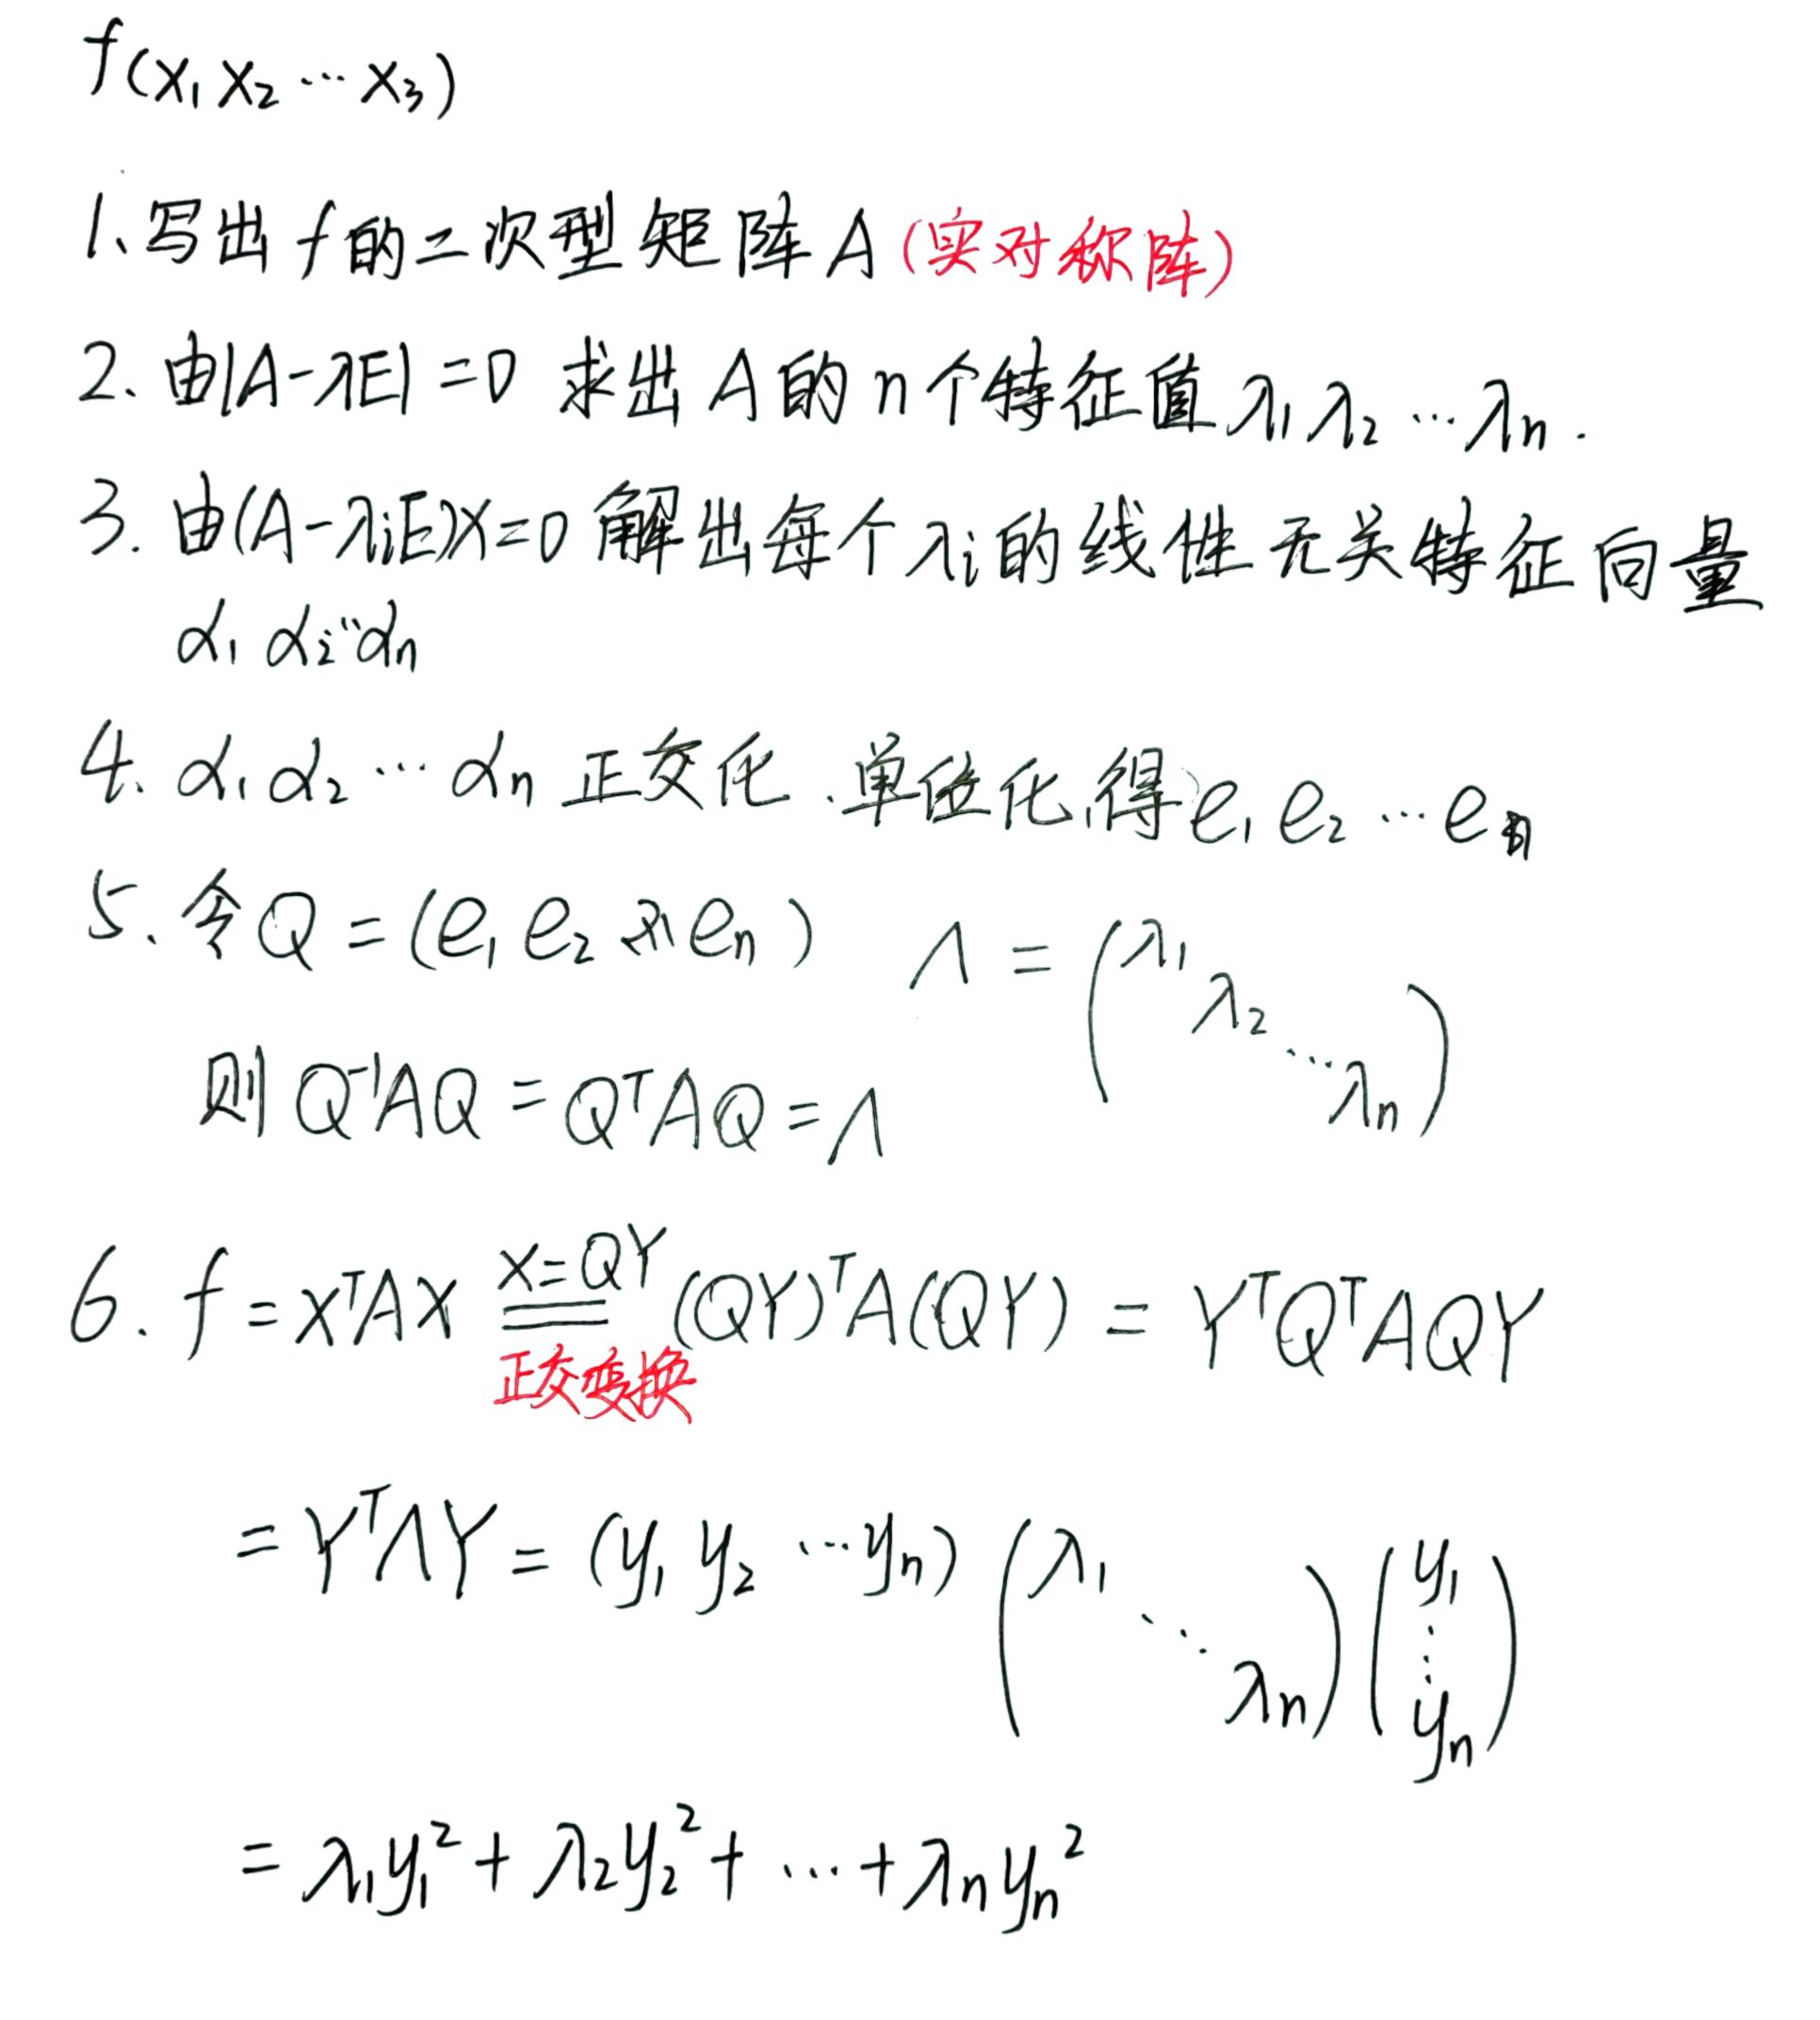 f(x₁ x₂ ⋯ x₃)
1、写出 f 的二次型矩阵 A (实对称阵)
2、由|A-λE|=0 求出 A 的 n 个特征值 λ₁ λ₂ ⋯ λn.
3. 由(A-λiE)X=0 解出每个 λi 的线性无关特征向量
α₁ α₂ ⋯ αn
4、α₁ α₂ ⋯ αn 正交化、单位化,得 e₁ e₂ ⋯ en
5、令 Q = (e₁ e₂ ⋯ en) Λ = (λ₁ λ₂ ⋯ λn)
则 Q⁻¹AQ = QᵀAQ = Λ
6. f = XᵀAX ==(X=QY) (QY)ᵀA(QY) = YᵀQᵀAQY
正交变换
= YᵀΛY = (y₁ y₂ ⋯ yn) (λ₁ ⋱ λn) (y₁ ⋮ yn)
= λ₁y₁² + λ₂y₂² + ⋯ + λnyn²